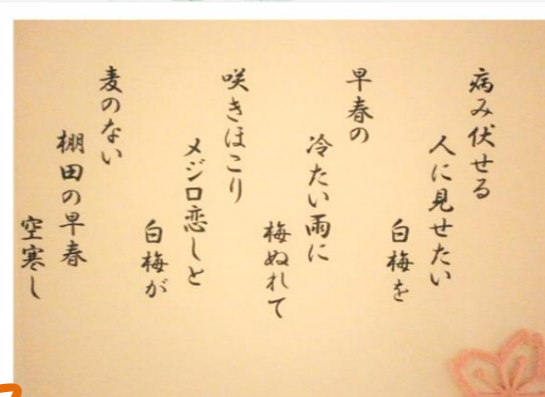 病み伏せる
人に見せたい
白梅を
早春の
冷たい雨に
梅ぬれて
咲きほこり
メジロ恋しと
白梅が
麦のない
棚田の早春
空寒し